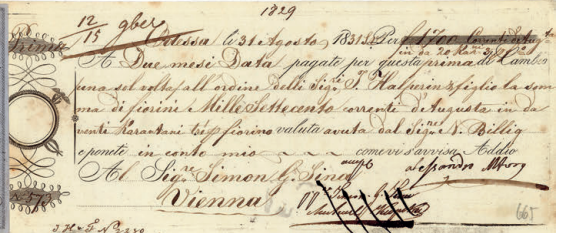 1829
12/15 9bre
Prima Odessa li 31 Agosto 1831 Per f 1700 Correnti
in da 20 Kar.ni
A Due mesi Data pagate per questa prima di Cambio
una sol volta all'ordine delli Sig.ri J. Halperin & figlio la som
ma di fiorini Mille Settecento correnti di Augusta in da
venti Karantani il fiorino valuta avuta dal Sig.re N. Billig
e ponete in conto mio come vi s'avvisa Addio
Al Sig.re Simon G. Sina
Vienna
No 573
665